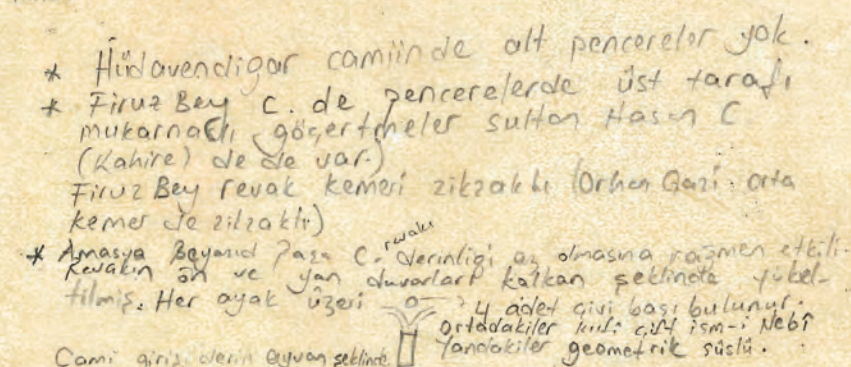 * Hüdavendigar camiinde alt pencereler yok.
* Firuz Bey C. de pencerelerde üst tarafı
mukarnaslı göçertmeler sultan Hasan C.
(Kahire) de de var.)
Firuz Bey revak kemeri zikzaklı (Orhan Gazi orta
kemer de zikzaklı)
* Amasya Beyazıd Paşa C. revakı derinliği az olmasına rağmen etkili.
Revakın ön ve yan duvarları kalkan şeklinde yükel-
tilmiş. Her ayak üzeri 4 adet çivi başı bulunur.
ortadakiler kufi çift ism-i Nebî
yandakiler geometrik süslü.
Cami girişi derin eyvan şeklinde